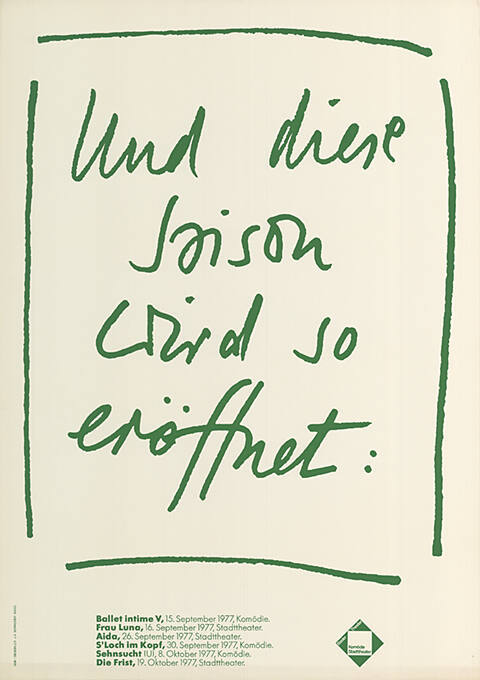 Und diese
Saison
wird so
eröffnet:
Ballet intime V, 15. September 1977, Komödie.
Frau Luna, 16. September 1977, Stadttheater.
Aida, 26. September 1977, Stadttheater.
S'Loch im Kopf, 30. September 1977, Komödie.
Sehnsucht (U), 8. Oktober 1977, Komödie.
Die Frist, 19. Oktober 1977, Stadttheater.
Komödie
Stadttheater